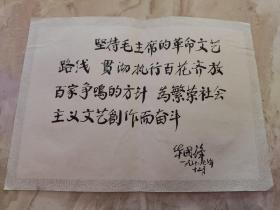 坚持毛主席的革命文艺
路线 贯彻执行百花齐放
百家争鸣的方针 為繁荣社会
主义文艺創作而奋斗
华國鋒
一九七七年
十二月